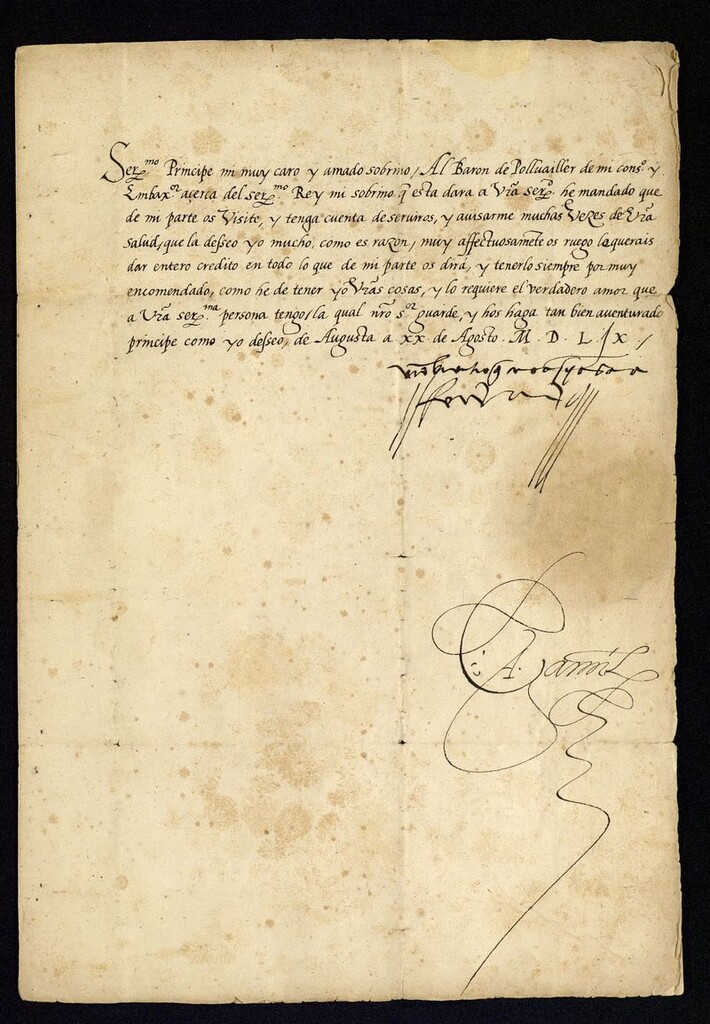 Ser.mo Principe mi muy caro y amado sobrino, Al Baron de Pollvailler de mi cons.o y
Embax.or açerca del ser.mo Rey mi sobrino q̃ esta dara a Vr̃a ser.d he mandado que
de mi parte os Visite, y tenga cuenta de seruiros, y auisarme muchas Vezes de Vr̃a
salud, que la desseo yo mucho, como es razon, muy affectuosamẽte os ruego le querais
dar entero credito en todo lo que de mi parte os dira, y tenerlo siempre por muy
encomendado, como he de tener yo Vr̃as cosas, y lo requiere el verdadero amor que
a Vr̃a ser.ma persona tengo, la qual nr̃o s.or guarde, y hos haga tan bien auenturado
principe como yo desseo, de Augusta a xx de Agosto. M. D. L. IX,